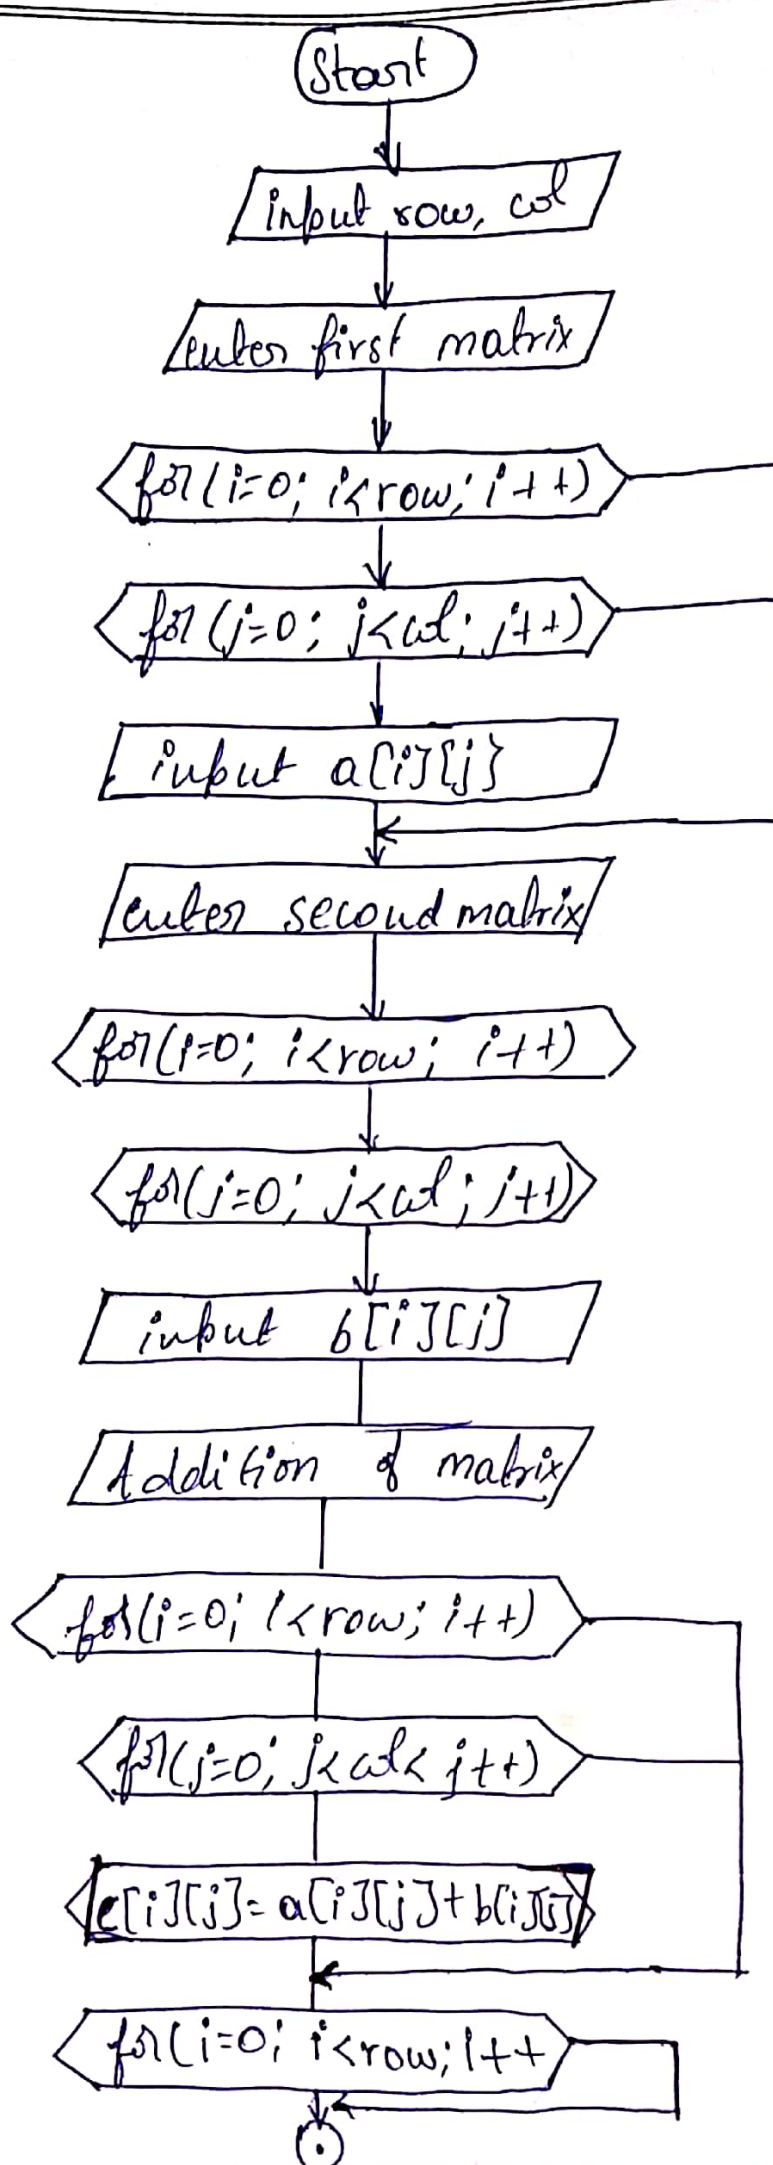 Start
input row, col
enter first matrix
for(i=0; i<row; i++)
for(j=0; j<col; j++)
input a[i][j]
enter second matrix
for(i=0; i<row; i++)
for(j=0; j<col; j++)
input b[i][j]
Addition of matrix
for(i=0; i<row; i++)
for(j=0; j<col< j++)
c[i][j]=a[i][j]+b[i][j]
for(i=0; i<row; i++